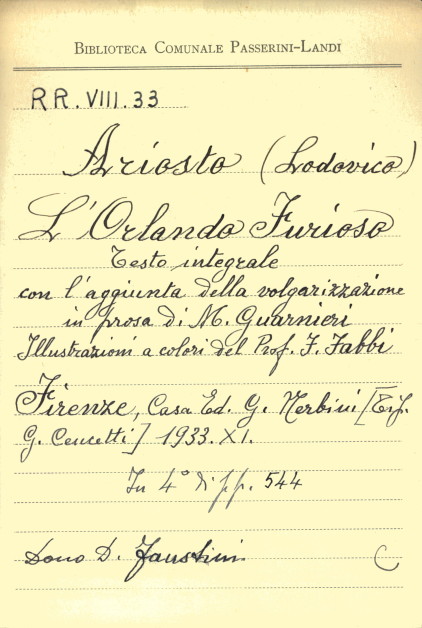 BIBLIOTECA COMUNALE PASSERINI-LANDI
RR. VIII. 33
Ariosto (Lodovico)
L'Orlando Furioso
Testo integrale
con l'aggiunta della volgarizzazione
in prosa di M. Guarnieri
Illustrazioni a colori del Prof. F. Fabbi
Firenze, Casa Ed. G. Nerbini [Tip.
G. Cencetti] 1933. XI.
In 4° di pp. 544
Dono D. Faustini
C